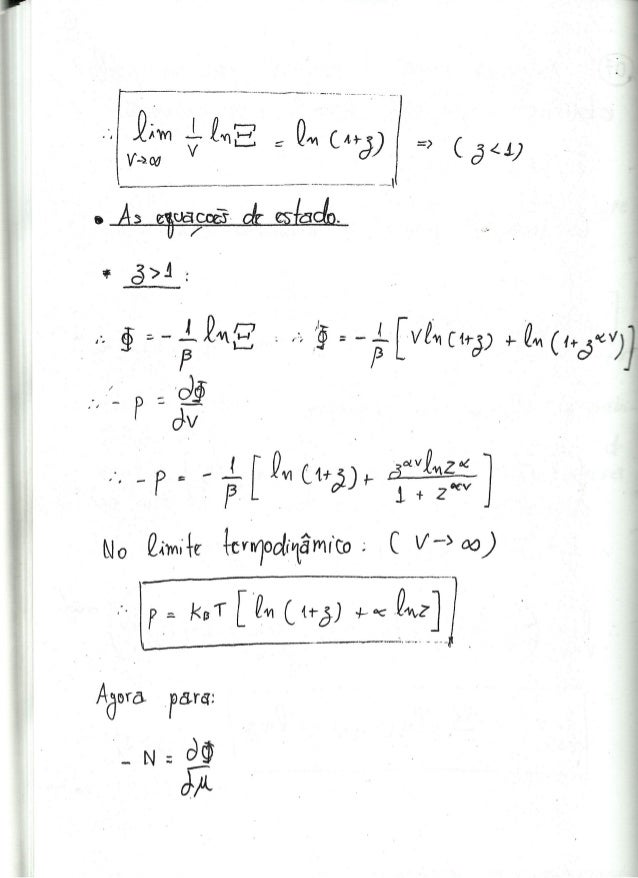 ∴ lim V→∞ 1/V ln Ξ = ln (1+z) => (z<1)
• As equações de estado.
* z>1:
∴ Φ = - 1/β ln Ξ ∴ Φ = - 1/β [V ln (1+z) + ln (1+z^αV)]
∴ - P = ∂Φ/∂V
∴ - P = - 1/β [ ln (1+z) + z^αV ln z α / 1 + z^αV ]
No limite termodinâmico: ( V → ∞ )
∴ P = KBT [ ln (1+z) + α ln z ]
Agora para:
- N = ∂Φ/∂μ